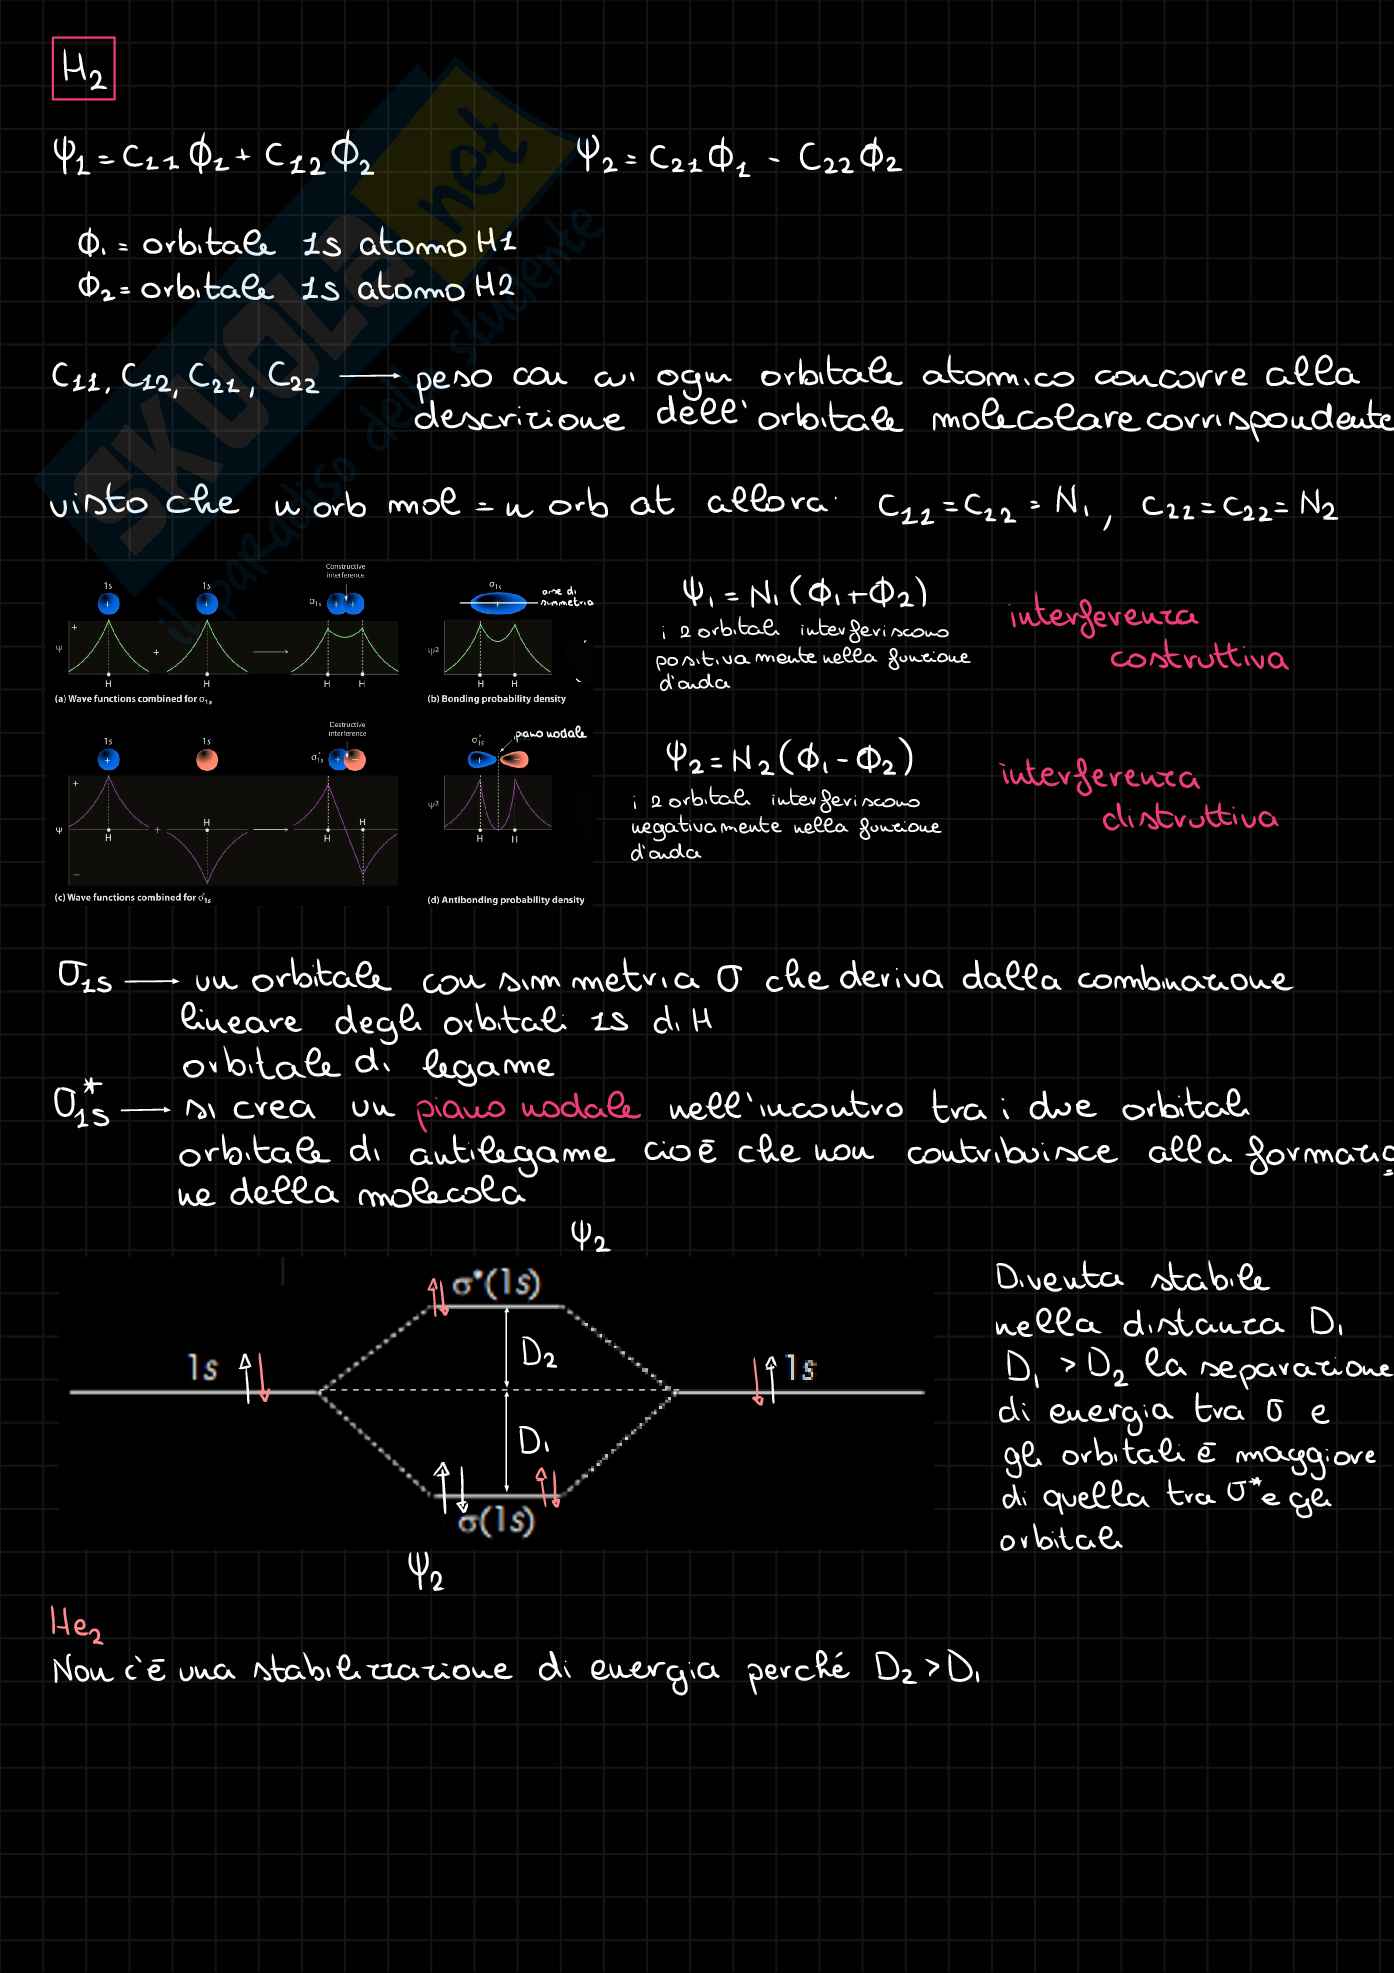 H₂
Ψ₁ = C₁₁ Φ₁ + C₁₂ Φ₂
Ψ₂ = C₂₁ Φ₁ - C₂₂ Φ₂
Φ₁ = orbitale 1s atomo H1
Φ₂ = orbitale 1s atomo H2
C₁₁, C₁₂, C₂₁, C₂₂ → peso con cui ogni orbitale atomico concorre alla
descrizione dell'orbitale molecolare corrispondente
visto che n orb mol = n orb at allora: C₂₂ = C₂₂ = N₁, C₂₂ = C₂₂ = N₂
SKUOLA.net
il paradiso dello studente
1s 1s Constructive interference
σ₁s
Ψ + H + H → H H
(a) Wave functions combined for σ₁s
σ₁s asse di simmetria
Ψ² H H
(b) Bonding probability density
Ψ₁ = N₁ (Φ₁+Φ₂)
i 2 orbitali interferiscono
positivamente nella funzione
d'onda
interferenza
costruttiva
1s 1s Destructive interference
σ*₁s
Ψ + − H + H → H H
(c) Wave functions combined for σ*₁s
σ*₁s piano nodale
Ψ² H H
(d) Antibonding probability density
Ψ₂ = N₂ (Φ₁ - Φ₂)
i 2 orbitali interferiscono
negativamente nella funzione
d'onda
interferenza
distruttiva
σ₁s → un orbitale con simmetria σ che deriva dalla combinazione
lineare degli orbitali 1s di H
orbitale di legame
σ*₁s → si crea un piano nodale nell'incontro tra i due orbitali
orbitale di antilegame cioè che non contribuisce alla formazio
ne della molecola
Ψ₂
σ*(1s)
D₂
1s 1s
D₁
σ(1s)
Ψ₂
Diventa stabile
nella distanza D₁
D₁ > D₂ la separazione
di energia tra σ e
gli orbitali è maggiore
di quella tra σ* e gli
orbitali
He₂
Non c'è una stabilizzazione di energia perché D₂ > D₁